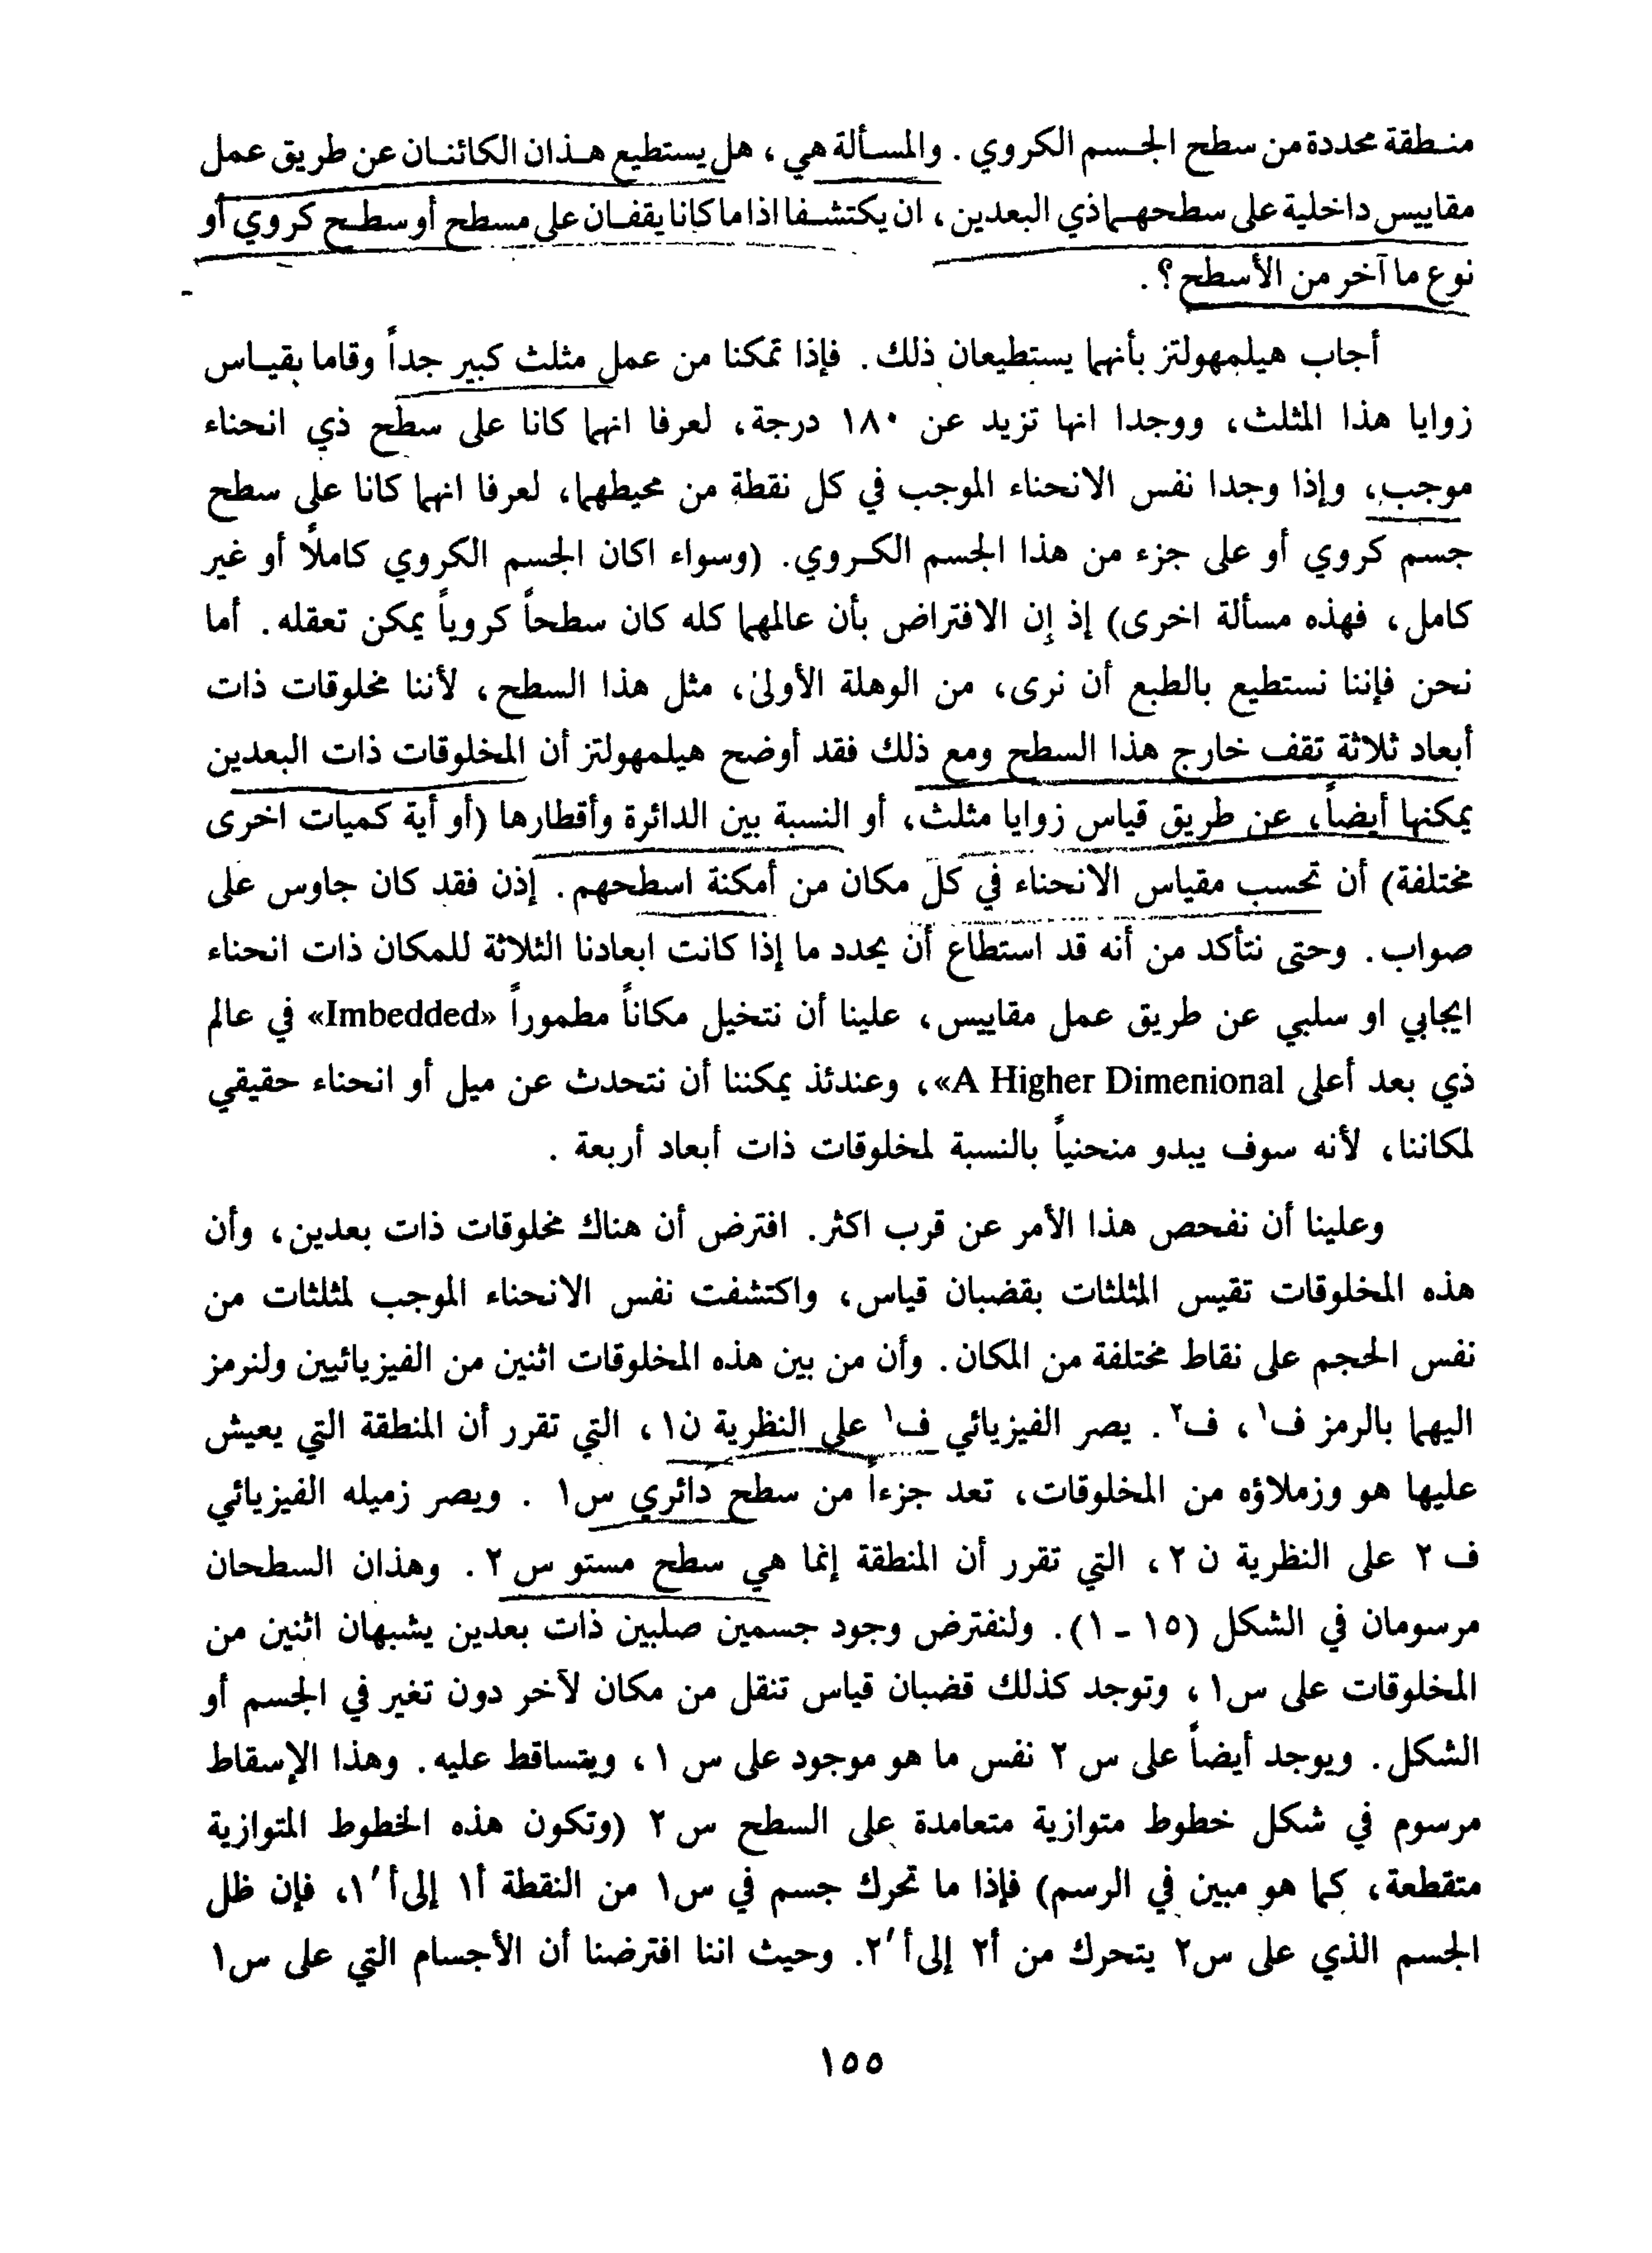 منطقة محددة من سطح الجسم الكروي . والمسألة هي ، هل يستطيع هذان الكائنان عن طريق عمل
مقاييس داخلية على سطحهما ذي البعدين ، ان يكتشفا اذا ما كانا يقفان على مسطح أو سطح كروي أو
نوع ما آخر من الأسطح ؟ .
أجاب هيلمهولتز بأنهما يستطيعان ذلك . فإذا تمكنا من عمل مثلث كبير جداً وقاما بقياس
زوايا هذا المثلث، ووجدا انها تزيد عن ١٨٠ درجة، لعرفا انهما كانا على سطح ذي انحناء
موجب، وإذا وجدا نفس الانحناء الموجب في كل نقطة من محيطهما، لعرفا انهما كانا على سطح
جسم كروي أو على جزء من هذا الجسم الكروي. (وسواء اكان الجسم الكروي كاملاً أو غير
كامل، فهذه مسألة اخرى) إذ إن الافتراض بأن عالمهما كله كان سطحاً كروياً يمكن تعقله. أما
نحن فإننا نستطيع بالطبع أن نرى، من الوهلة الأولى، مثل هذا السطح، لأننا مخلوقات ذات
أبعاد ثلاثة تقف خارج هذا السطح ومع ذلك فقد أوضح هيلمهولتز أن المخلوقات ذات البعدين
يمكنها أيضاً، عن طريق قياس زوايا مثلث، أو النسبة بين الدائرة وأقطارها (أو أية كميات اخرى
مختلفة) أن تحسب مقياس الانحناء في كل مكان من أمكنة اسطحهم . إذن فقد كان جاوس على
صواب. وحتى نتأكد من أنه قد استطاع أن يحدد ما إذا كانت ابعادنا الثلاثة للمكان ذات انحناء
ايجابي او سلبي عن طريق عمل مقاييس، علينا أن نتخيل مكاناً مطموراً «Imbedded» في عالم
ذي بعد أعلى A Higher Dimenional»، وعندئذ يمكننا أن نتحدث عن ميل أو انحناء حقيقي
لمكاننا، لأنه سوف يبدو منحنياً بالنسبة لمخلوقات ذات أبعاد أربعة .
وعلينا أن نفحص هذا الأمر عن قرب اكثر. افترض أن هناك مخلوقات ذات بعدين، وأن
هذه المخلوقات تقيس المثلثات بقضبان قياس، واكتشفت نفس الانحناء الموجب لمثلثات من
نفس الحجم على نقاط مختلفة من المكان. وأن من بين هذه المخلوقات اثنين من الفيزيائيين ولنرمز
اليهما بالرمز ف١، ف٢. يصر الفيزيائي ف١ على النظرية ن١، التي تقرر أن المنطقة التي يعيش
عليها هو وزملاؤه من المخلوقات، تعد جزءاً من سطح دائري س١ . ويصر زميله الفيزيائي
ف ٢ على النظرية ن ٢، التي تقرر أن المنطقة إنما هي سطح مستو س ٢. وهذان السطحان
مرسومان في الشكل (١٥ - ١). ولنفترض وجود جسمين صلبين ذات بعدين يشبهان اثنين من
المخلوقات على س١، وتوجد كذلك قضبان قياس تنقل من مكان لآخر دون تغير في الجسم أو
الشكل. ويوجد أيضاً على س ٢ نفس ما هو موجود على س ١، ويتساقط عليه. وهذا الإسقاط
مرسوم في شكل خطوط متوازية متعامدة على السطح س ٢ (وتكون هذه الخطوط المتوازية
متقطعة، كما هو مبين في الرسم) فإذا ما تحرك جسم في س١ من النقطة أ١ إلى أ'١، فإن ظل
الجسم الذي على س٢ يتحرك من أ٢ إلى أ'٢. وحيث اننا افترضنا أن الأجسام التي على س١
١٥٥